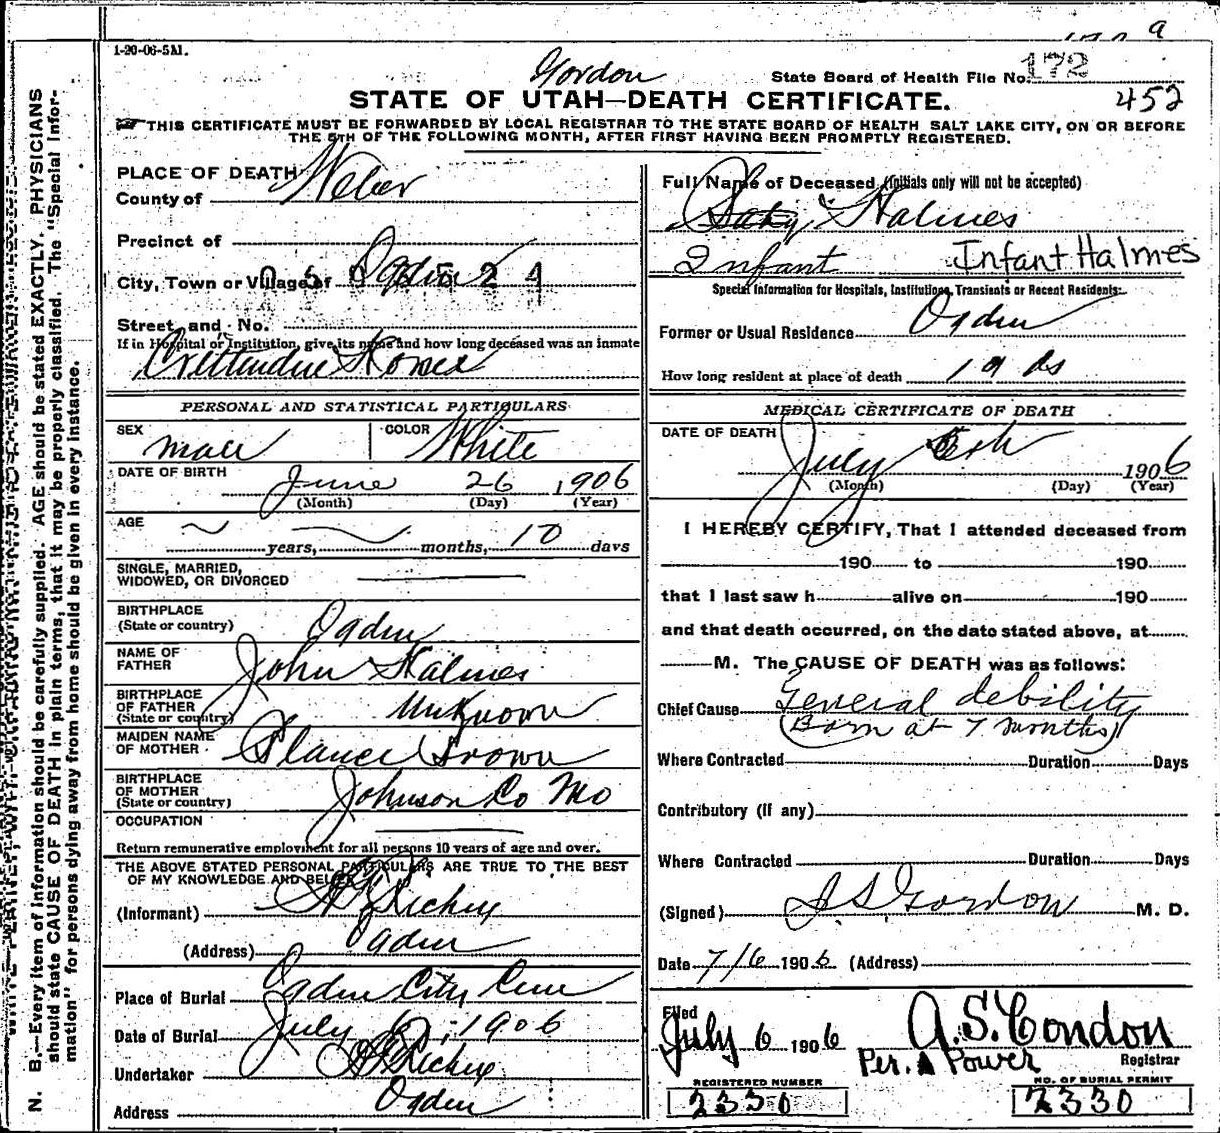 1-20-06-5M.
Gordon
State Board of Health File No. 172
STATE OF UTAH—DEATH CERTIFICATE.
452
THIS CERTIFICATE MUST BE FORWARDED BY LOCAL REGISTRAR TO THE STATE BOARD OF HEALTH SALT LAKE CITY, ON OR BEFORE
THE 5TH OF THE FOLLOWING MONTH, AFTER FIRST HAVING BEEN PROMPTLY REGISTERED.
PLACE OF DEATH
County of Weber
Precinct of
City, Town or Village of Ogden
Street and No.
If in Hospital or Institution, give its name and how long deceased was an inmate
Crittenden Home
PERSONAL AND STATISTICAL PARTICULARS
SEX male COLOR White
DATE OF BIRTH June 26 1906
(Month) (Day) (Year)
AGE years, months, 10 days
SINGLE, MARRIED,
WIDOWED, OR DIVORCED
BIRTHPLACE
(State or country) Ogden
NAME OF
FATHER John Halmes
BIRTHPLACE
OF FATHER
(State or country) Unknown
MAIDEN NAME
OF MOTHER Brown
BIRTHPLACE
OF MOTHER
(State or country) Johnson Co Mo
OCCUPATION
Return remunerative employment for all persons 10 years of age and over.
THE ABOVE STATED PERSONAL PARTICULARS ARE TRUE TO THE BEST
OF MY KNOWLEDGE AND BELIEF
(Informant) Richey
(Address) Ogden
Place of Burial Ogden City Cem
Date of Burial July 6, 1906
Undertaker Richey
Address Ogden
Full Name of Deceased (Initials only will not be accepted)
Baby Halmes
Infant Infant Halmes
Special Information for Hospitals, Institutions, Transients or Recent Residents:
Former or Usual Residence Ogden
How long resident at place of death 10 ds
MEDICAL CERTIFICATE OF DEATH
DATE OF DEATH July 6th 1906
(Month) (Day) (Year)
I HEREBY CERTIFY, That I attended deceased from
190 to 190
that I last saw h alive on 190
and that death occurred, on the date stated above, at
M. The CAUSE OF DEATH was as follows:
Chief Cause General debility
(Born at 7 months)
Where Contracted Duration Days
Contributory (if any)
Where Contracted Duration Days
(Signed) Gordon M. D.
Date 7/6 1906 (Address)
Filed
July 6 1906 A. S. Condon
Per. A Power Registrar
REGISTERED NUMBER
2330
NO. OF BURIAL PERMIT
2330
N. B.—Every item of information should be carefully supplied. AGE should be stated EXACTLY. PHYSICIANS
should state CAUSE OF DEATH in plain terms, that it may be properly classified. The "Special Infor-
mation" for persons dying away from home should be given in every instance.